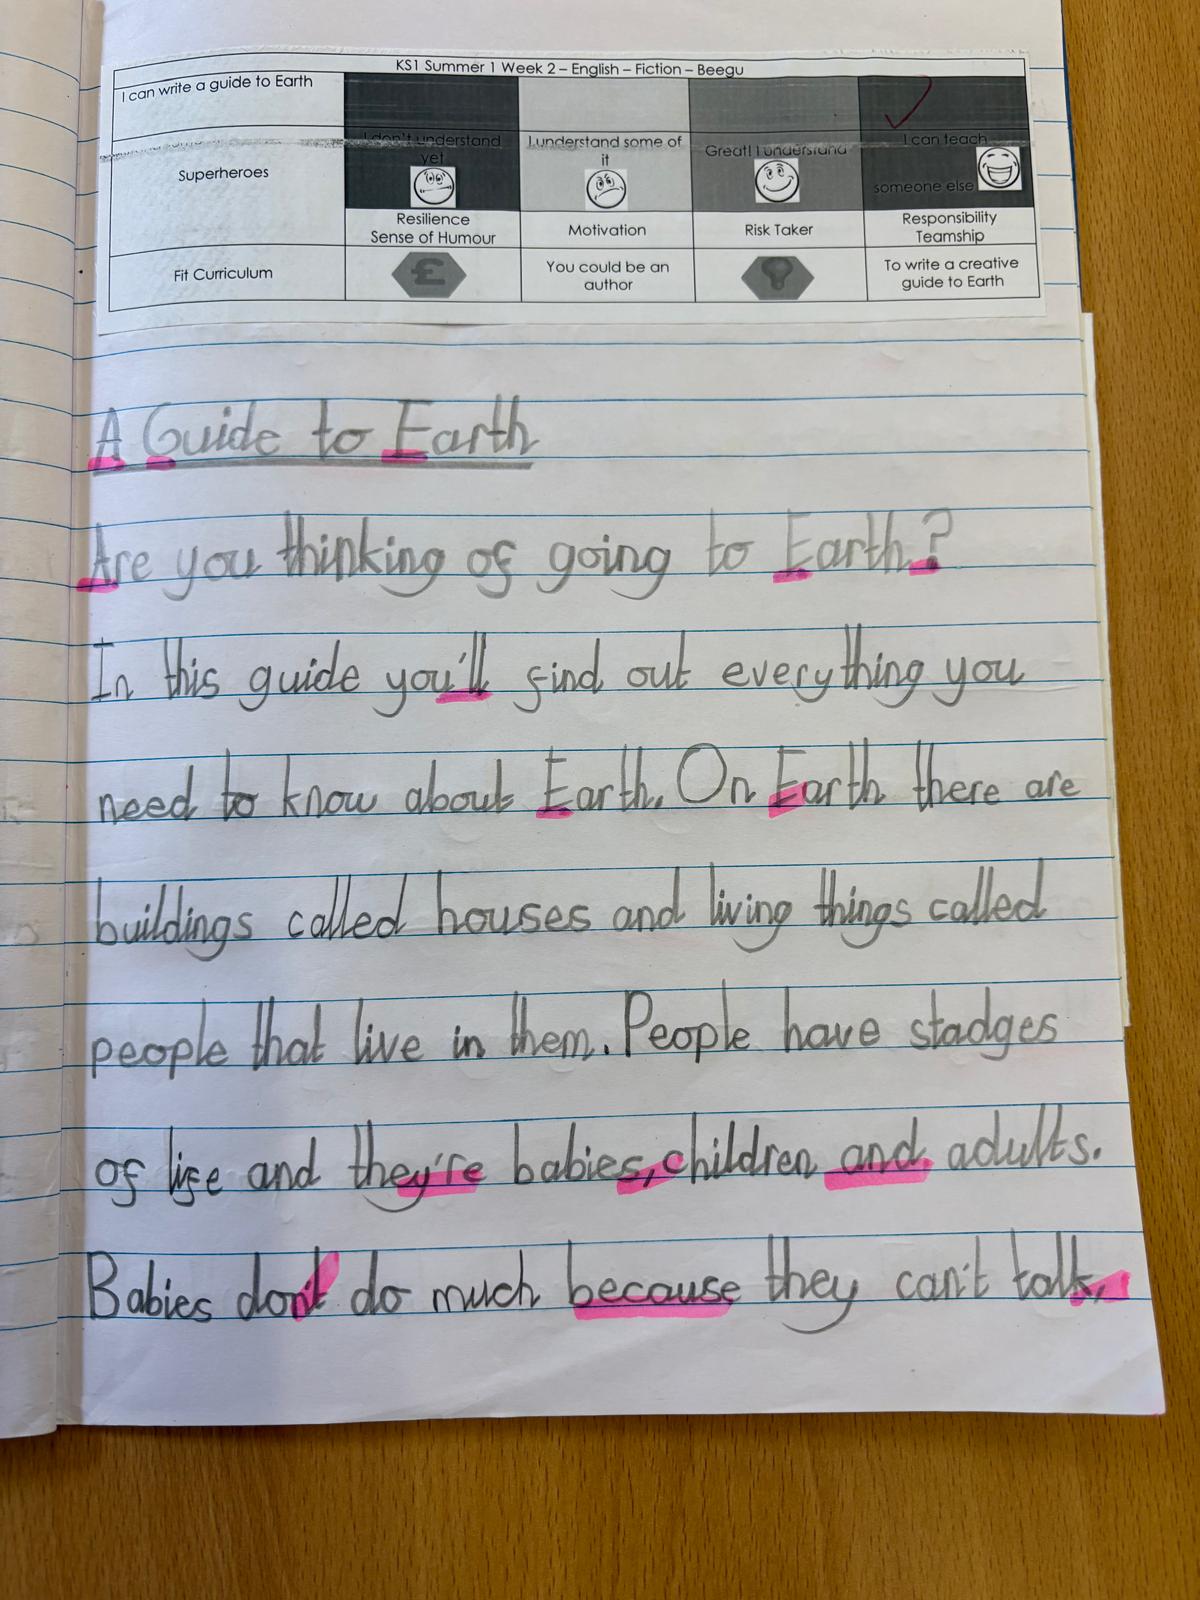 KS1 Summer 1 Week 2 – English – Fiction – Beegu
I can write a guide to Earth
I don't understand yet
I understand some of it
Great! I understand
I can teach someone else
Superheroes
Resilience
Sense of Humour
Motivation
Risk Taker
Responsibility
Teamship
Fit Curriculum
£
You could be an author
To write a creative guide to Earth
A Guide to Earth
Are you thinking of going to Earth?
In this guide you'll find out everything you
need to know about Earth. On Earth there are
buildings called houses and living things called
people that live in them. People have stadges
of life and they're babies, children and adults.
Babies don't do much because they can't talk,